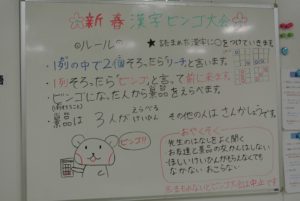 新春漢字ビンゴ大会
◎ルール◎
★読まれた漢字に○をつけていきます。
・1列の中で2個そろったら"リーチ"と言います。
・1列そろったら"ビンゴ"と言って前に来ます。
・ビンゴになった人から景品をえらべます。
・景品は 3人が えらべる
けいひん その他の人は さんかしょうです。
ビンゴ!!
おやくそく
・先生のはなしをよく聞く
・お友達と景品の交かんはしない
・ほしいけいひんがもらえなくても
なかない おこらない
まもれないとビンゴ大会は中止です